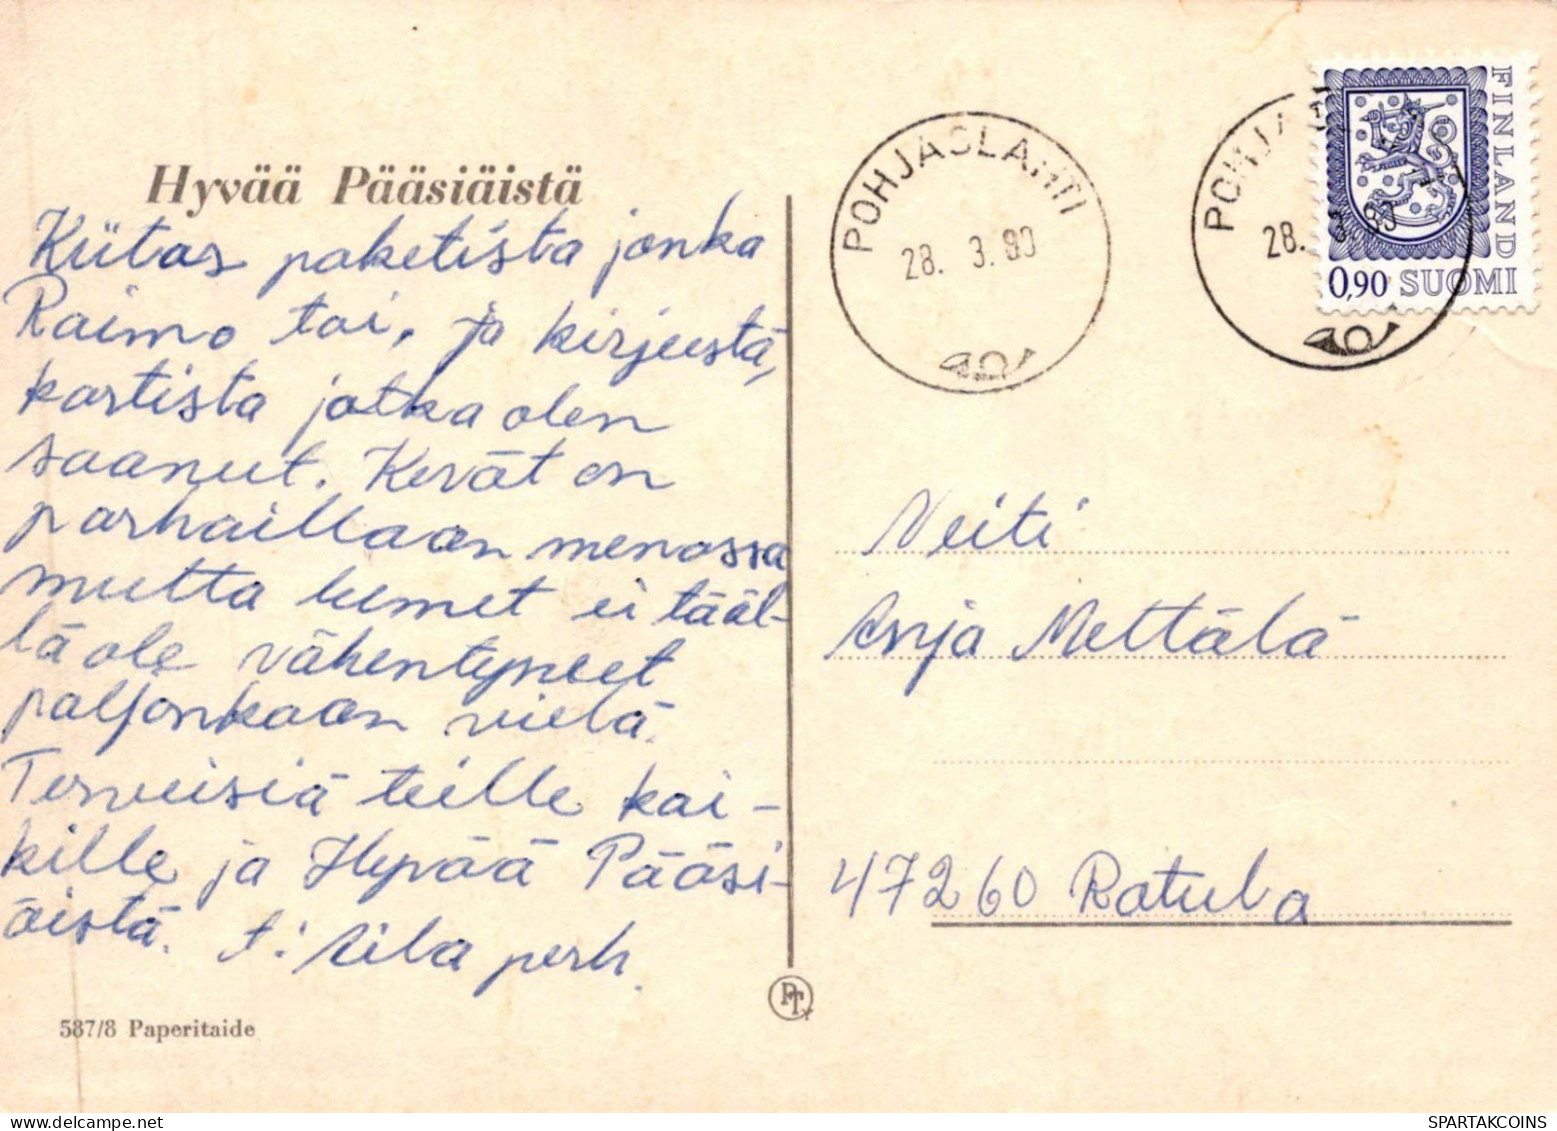 Hyvää Pääsiäistä
Kiitos paketista jonka
Raimo toi, ja kirjeestä,
kortista jotka olen
saanut. Kevät on
parhaillaan menossa
mutta lumet ei tääl-
lä ole vähentyneet
paljonkaan vielä.
Terveisiä teille kai-
kille ja Hyvää Pääsi-
äistä. t: Aila perh.
587/8 Paperitaide
PTY
POHJASLAHTI
28. 3. 80
POHJA
28. 3. 80
FINLAND
0,90 SUOMI
Neiti
Anja Mettälä
47260 Ratula
SPARTAKCOINS